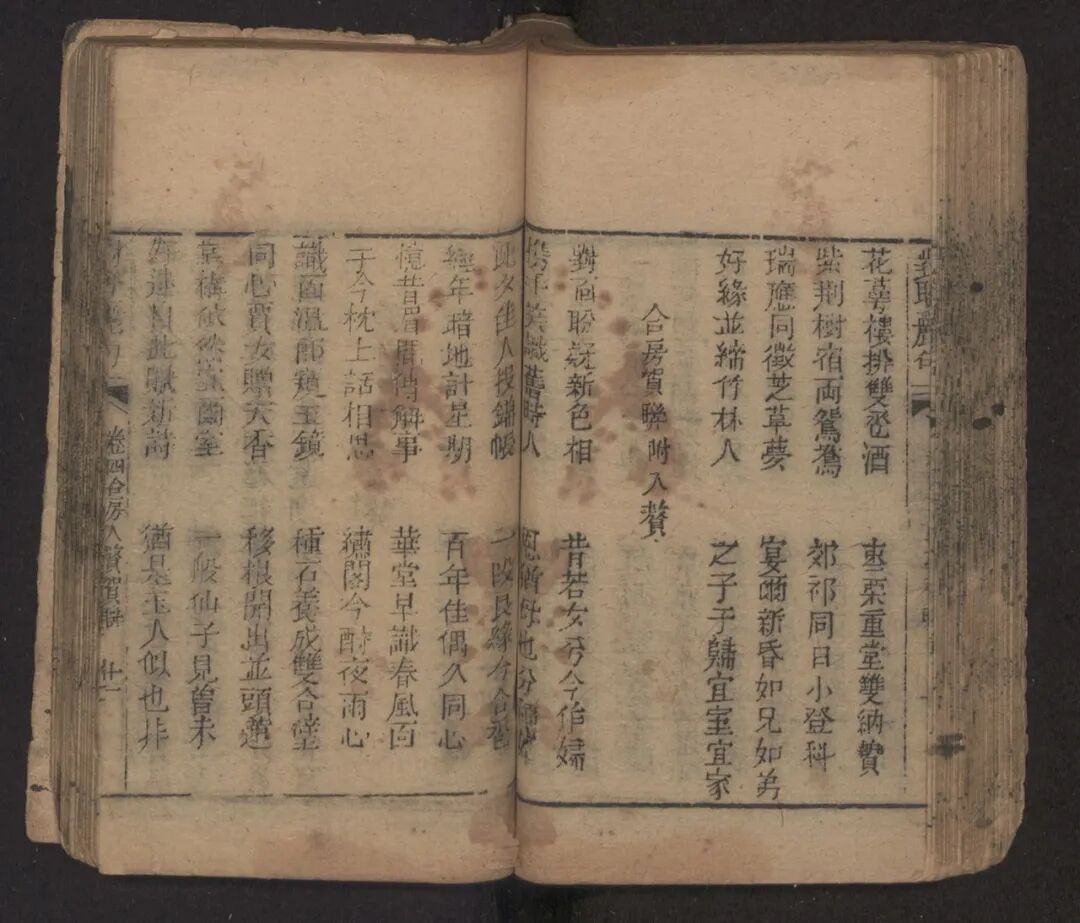 花萼樓排雙卺酒 棗栗重堂雙納贄
紫荆樹宿兩鴛鴦 郊祁同日小登科
瑞應同徵芝草夢 宴爾新昏如兄如弟
好緣並締竹林人 之子于歸宜室宜家
合房賀聯附入贅
對面盼疑新色相 昔若女兮今作婦
攜手笑識舊時人
此夕佳人授錦帳 一段良緣今合卺
經年暗地計星期 百年佳偶久同心
憶昔眉間傳解事 華堂早識春風面
于今枕上話相思 繡閣今酣夜雨心
識面溫郎窺玉鏡 種石養成雙合璧
同心賈女贈天香 移根開出並頭蓮
一般仙子見曾未
猶是玉人似也非
卷四合房入贅賀聯